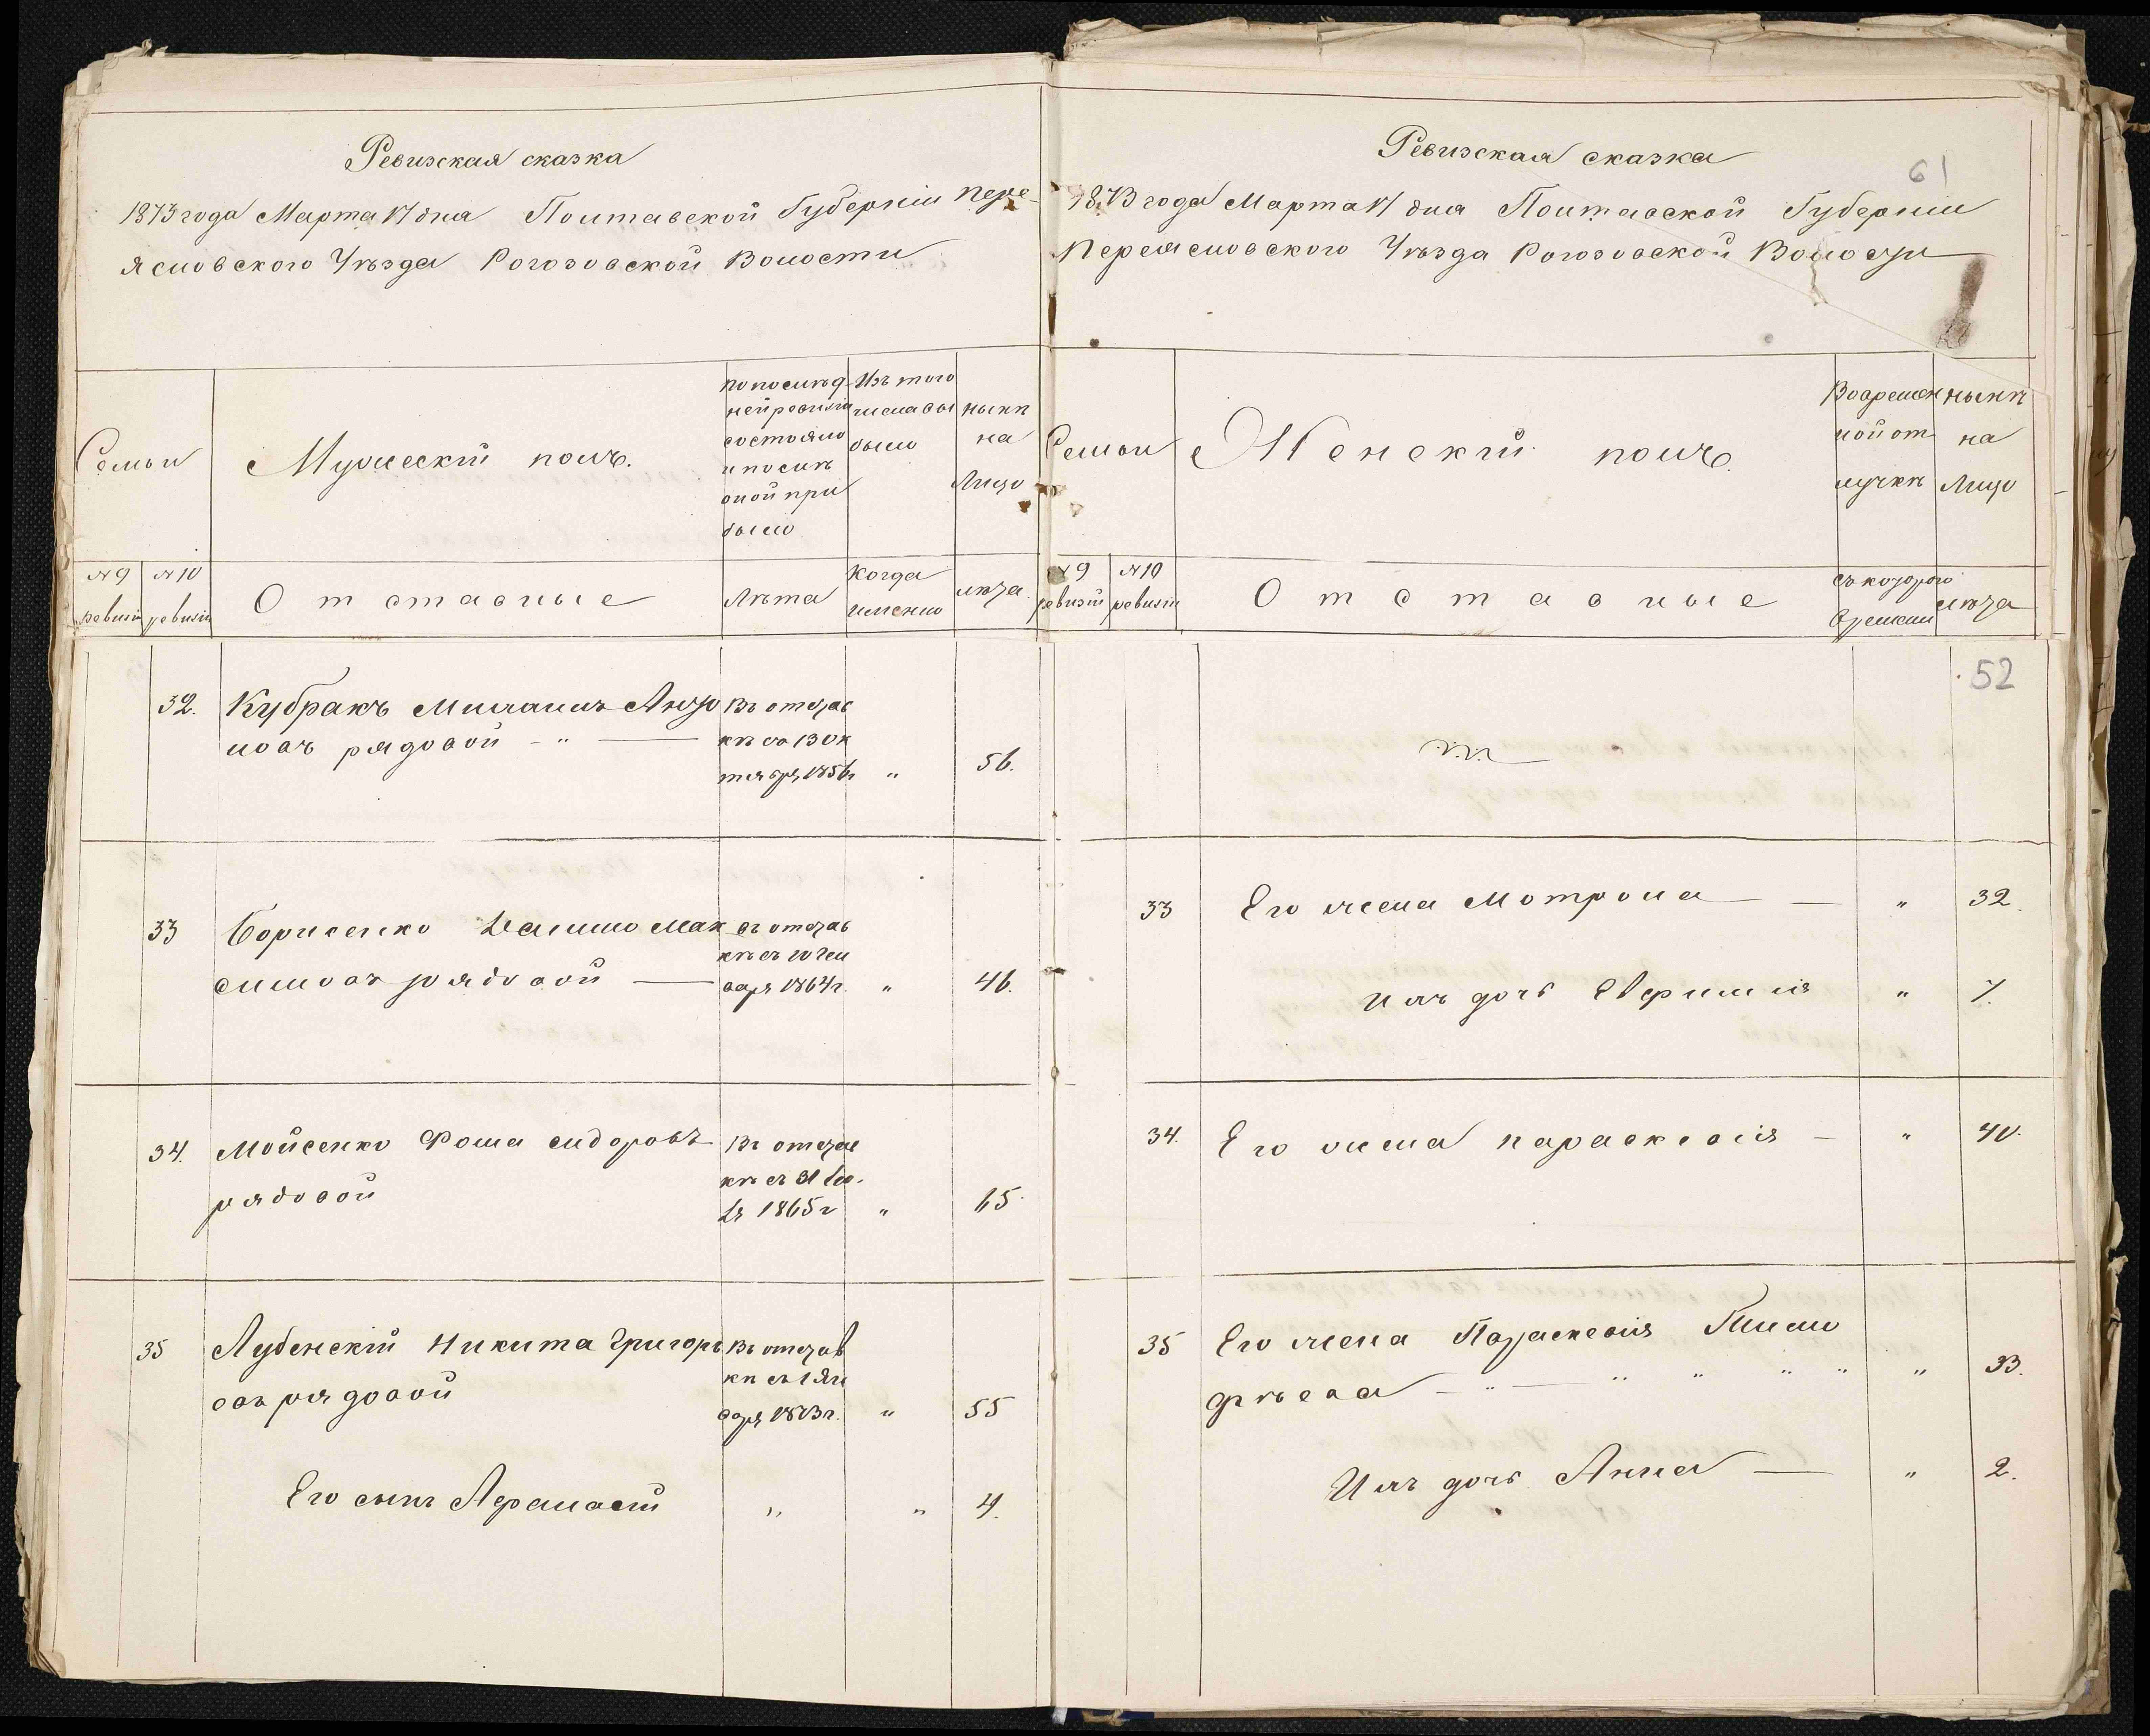 Ревизская сказка
1873 года Марта 17 дня Полтавской Губерніи Пере-
яславского Уѣзда Рогозовской Волости
Семьи
Мужескій полъ.
По послѣд
ней ревизіи
состояло
и послѣ
оной при
было
Изъ того
числа вы
было
Нынѣ
на
Лицо
№ 9
ревизіи
№ 10
ревизіи
Отставные
Лѣта
Когда
именно
лѣта
32. Кубракъ
новъ рядовой - " -
Въ отстав
кѣ со 13 Ок
тября 1856 г " 56.
33 Борисенко Данило Мак
симовъ рядовой
съ отстав
кѣ съ
варя 1864 г. " 46.
34. Мойсенко Фома Сидоровъ
рядовой
Въ отстав
кѣ съ 31
1865 г " 65.
35 Лубенскій Никита Григорь
евъ рядовой
Въ отстав
кѣ съ 1 Ян
варя 1873 г. " 55
Его сынъ Афанасій " " 4.
Ревизская сказка
61
1873 года Марта 17 дня Полтавской Губерніи
Переяславского Уѣзда Рогозовской Волости
Семьи
Женскій полъ.
Во времен
ной от
лучкѣ
Нынѣ
на
Лицо
№ 9
ревизіи
№ 10
ревизіи
Отставные
съ которого
времени
лѣта
52
33 Его жена Мотрона - " 32.
Ихъ дочь " 7.
34. Его жена Параскевія - " 40.
35 Его жена Параскевія Тимо
фѣева - " - " " " " " 33.
Ихъ дочь Анна - " 2.